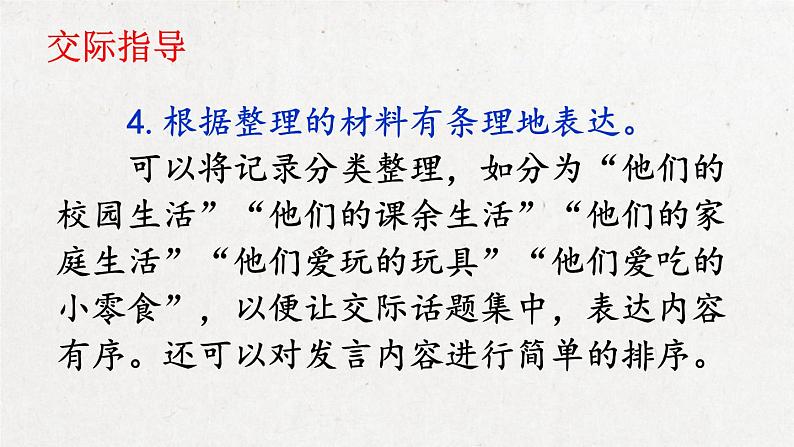 交际指导
4. 根据整理的材料有条理地表达。
可以将记录分类整理，如分为“他们的
校园生活”“他们的课余生活”“他们的家
庭生活”“他们爱玩的玩具”“他们爱吃的
小零食”，以便让交际话题集中，表达内容
有序。还可以对发言内容进行简单的排序。